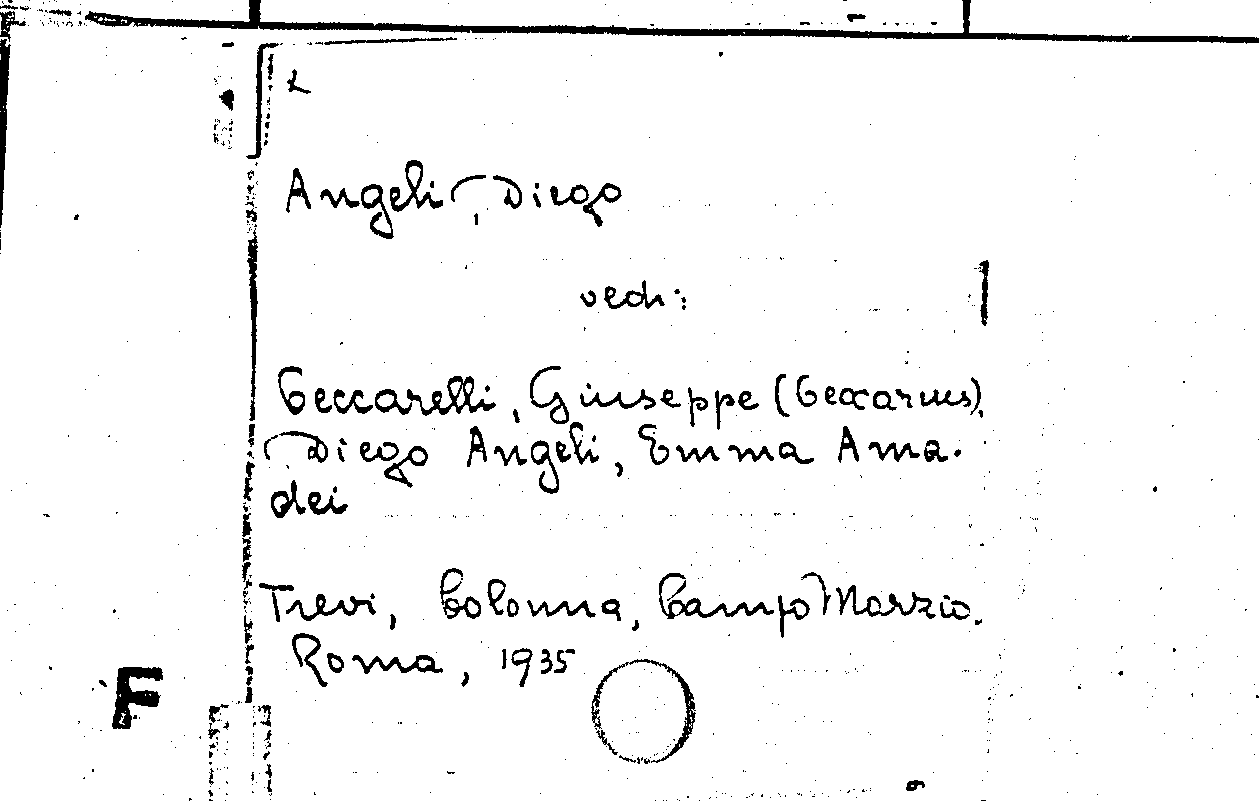 Angeli, Diego
vedi:
Ceccarelli, Giuseppe (Ceccarius),
Diego Angeli, Emma Ama-
dei
Trevi, Colonna, Campo Marzio.
Roma, 1935
F